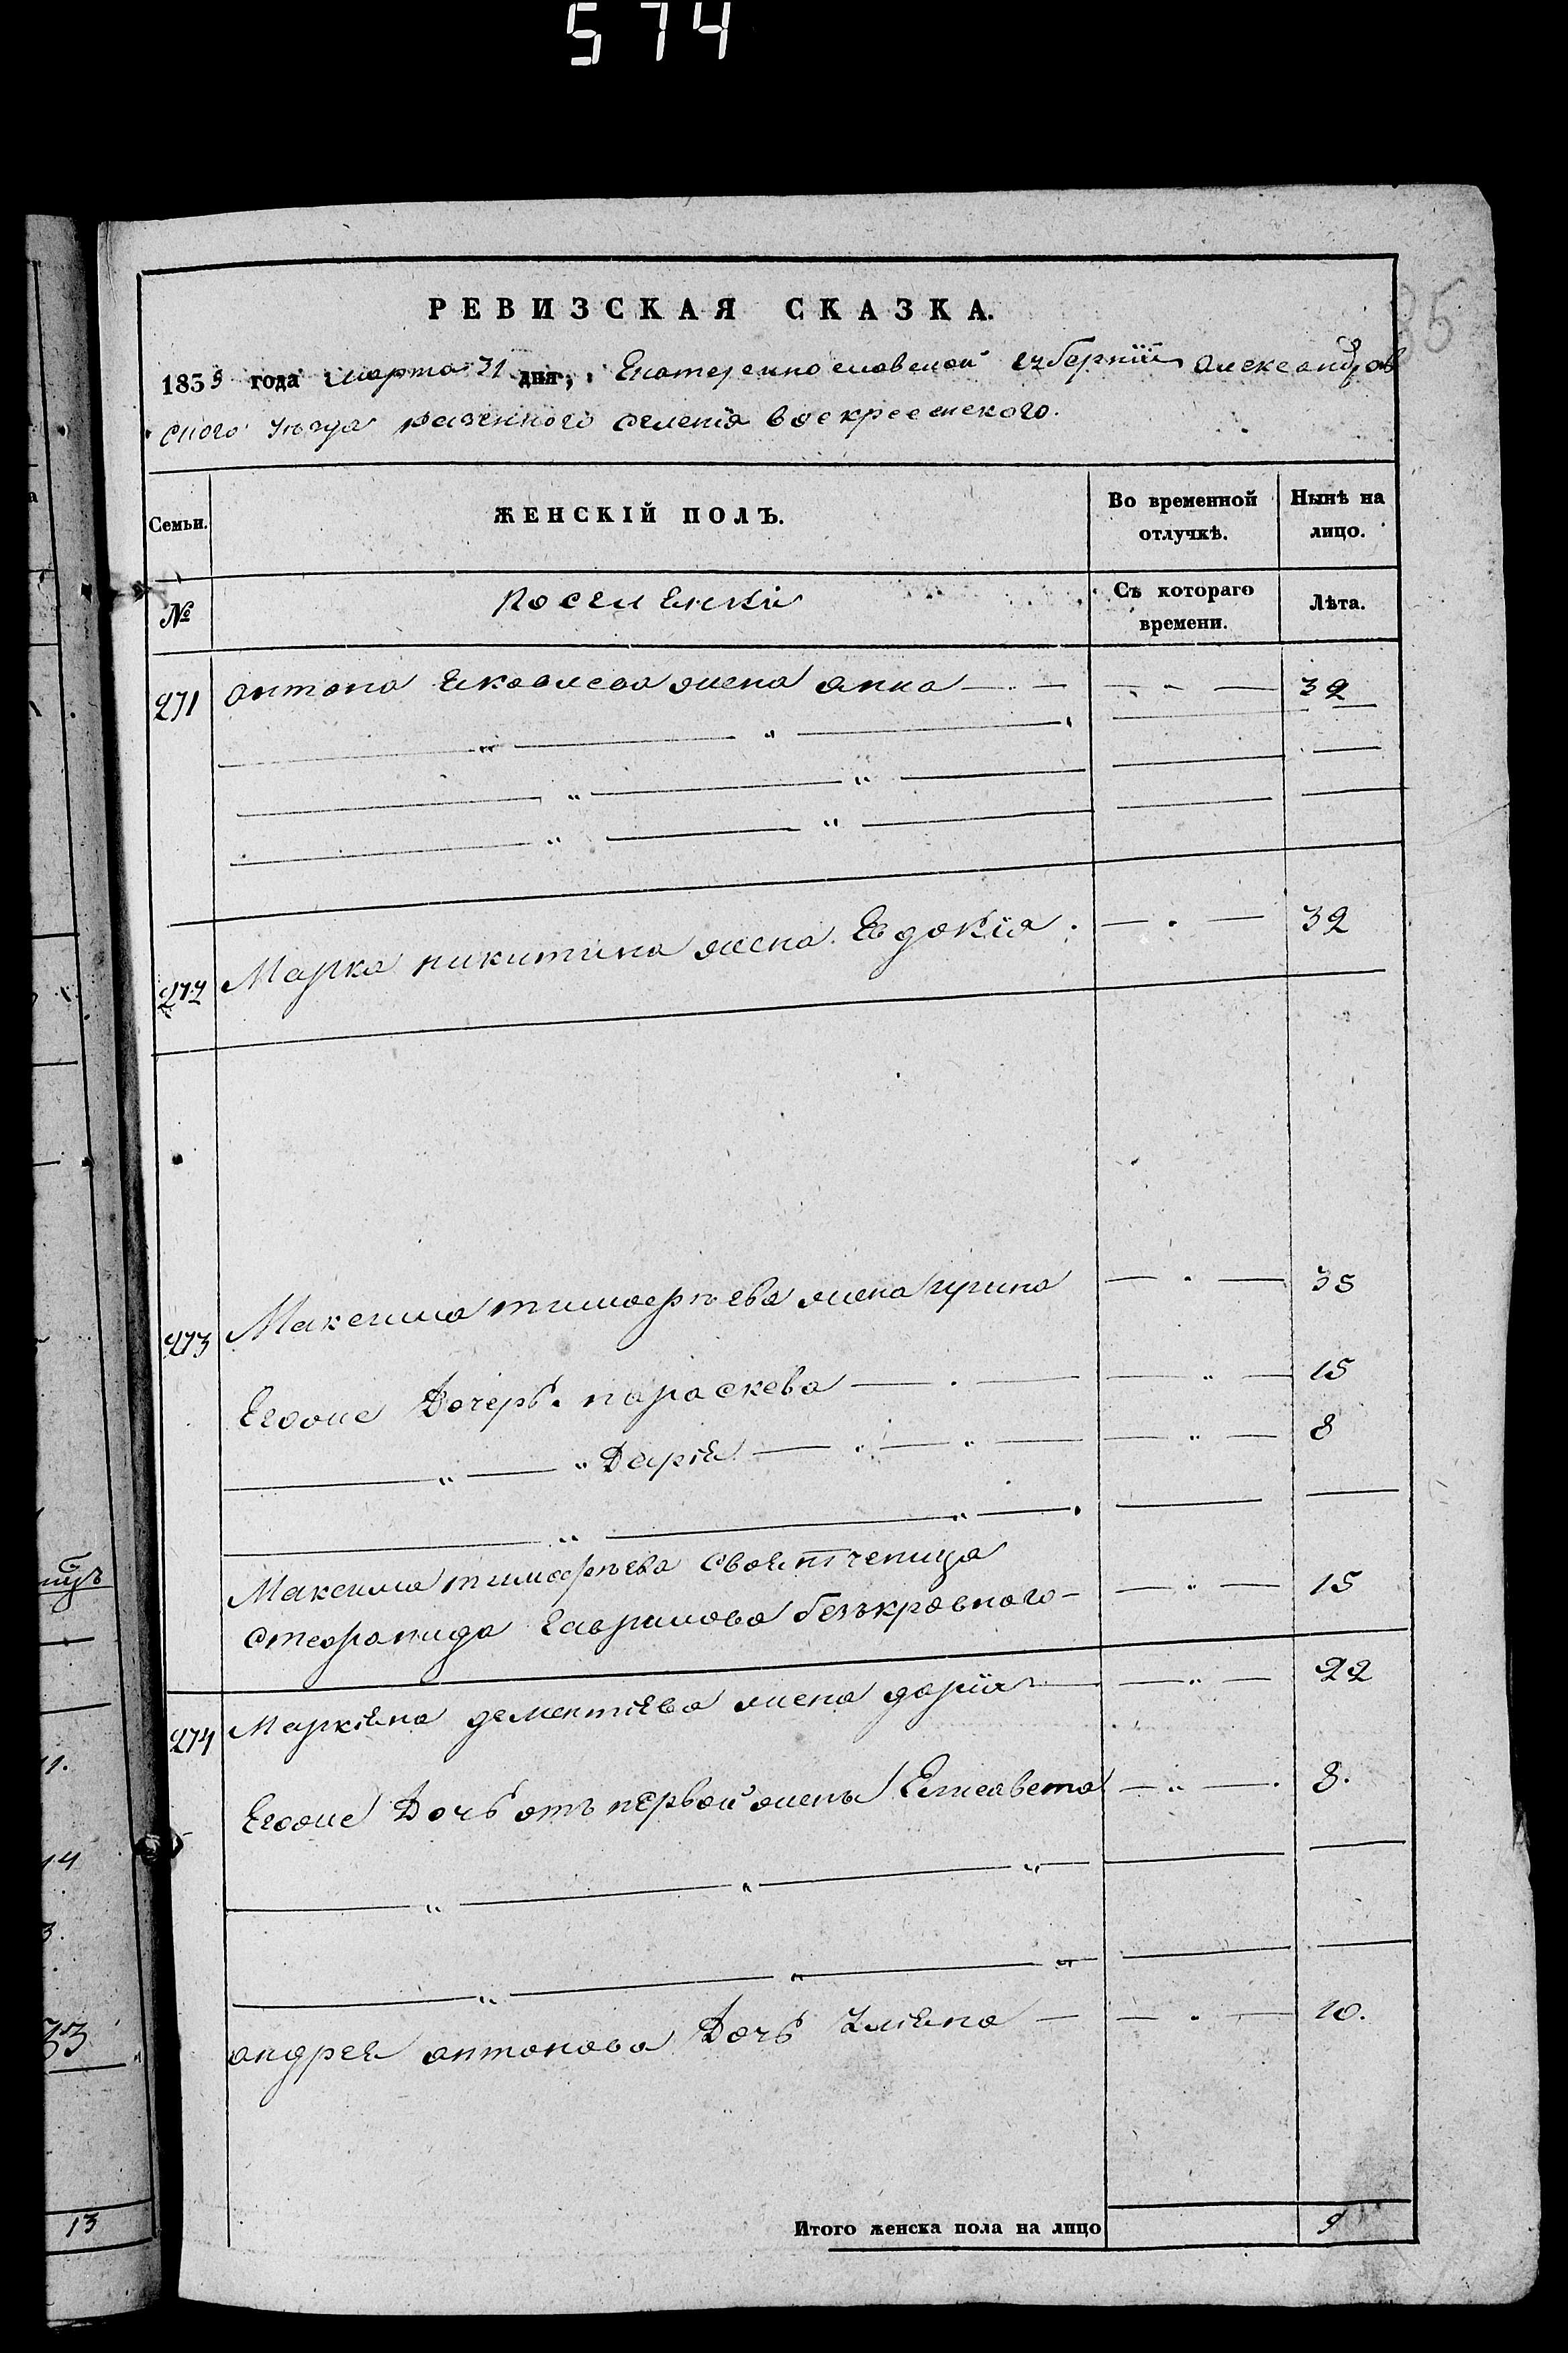 574
РЕВИЗСКАЯ СКАЗКА.
1835 года марта 31 дня, Екатеринославской губернiи Александров
ского уезда казенного селенiя воскресенского.
Семьи.
ЖЕНСКIЙ ПОЛЪ.
Во временной отлучкѣ.
Нынѣ на лицо.
№
Поселенки
Съ котораго времени.
Лѣта.
271 антона Яковлева жена анна 32
272 Марка никитина жена Евдокiя 32
273 Максима тимофѣева жена ирина 35
Егоже Дочерь параскева 15
Дарiя 8
Максима тимофѣева
стефанида Гаврилова безъкровного 15
274 Маркiяна дементiева жена дарiя 22
Егоже Дочь отъ первой жены Елисавета 8.
андрея антонова Дочь Улiяна 10.
Итого женска пола на лицо 9
13